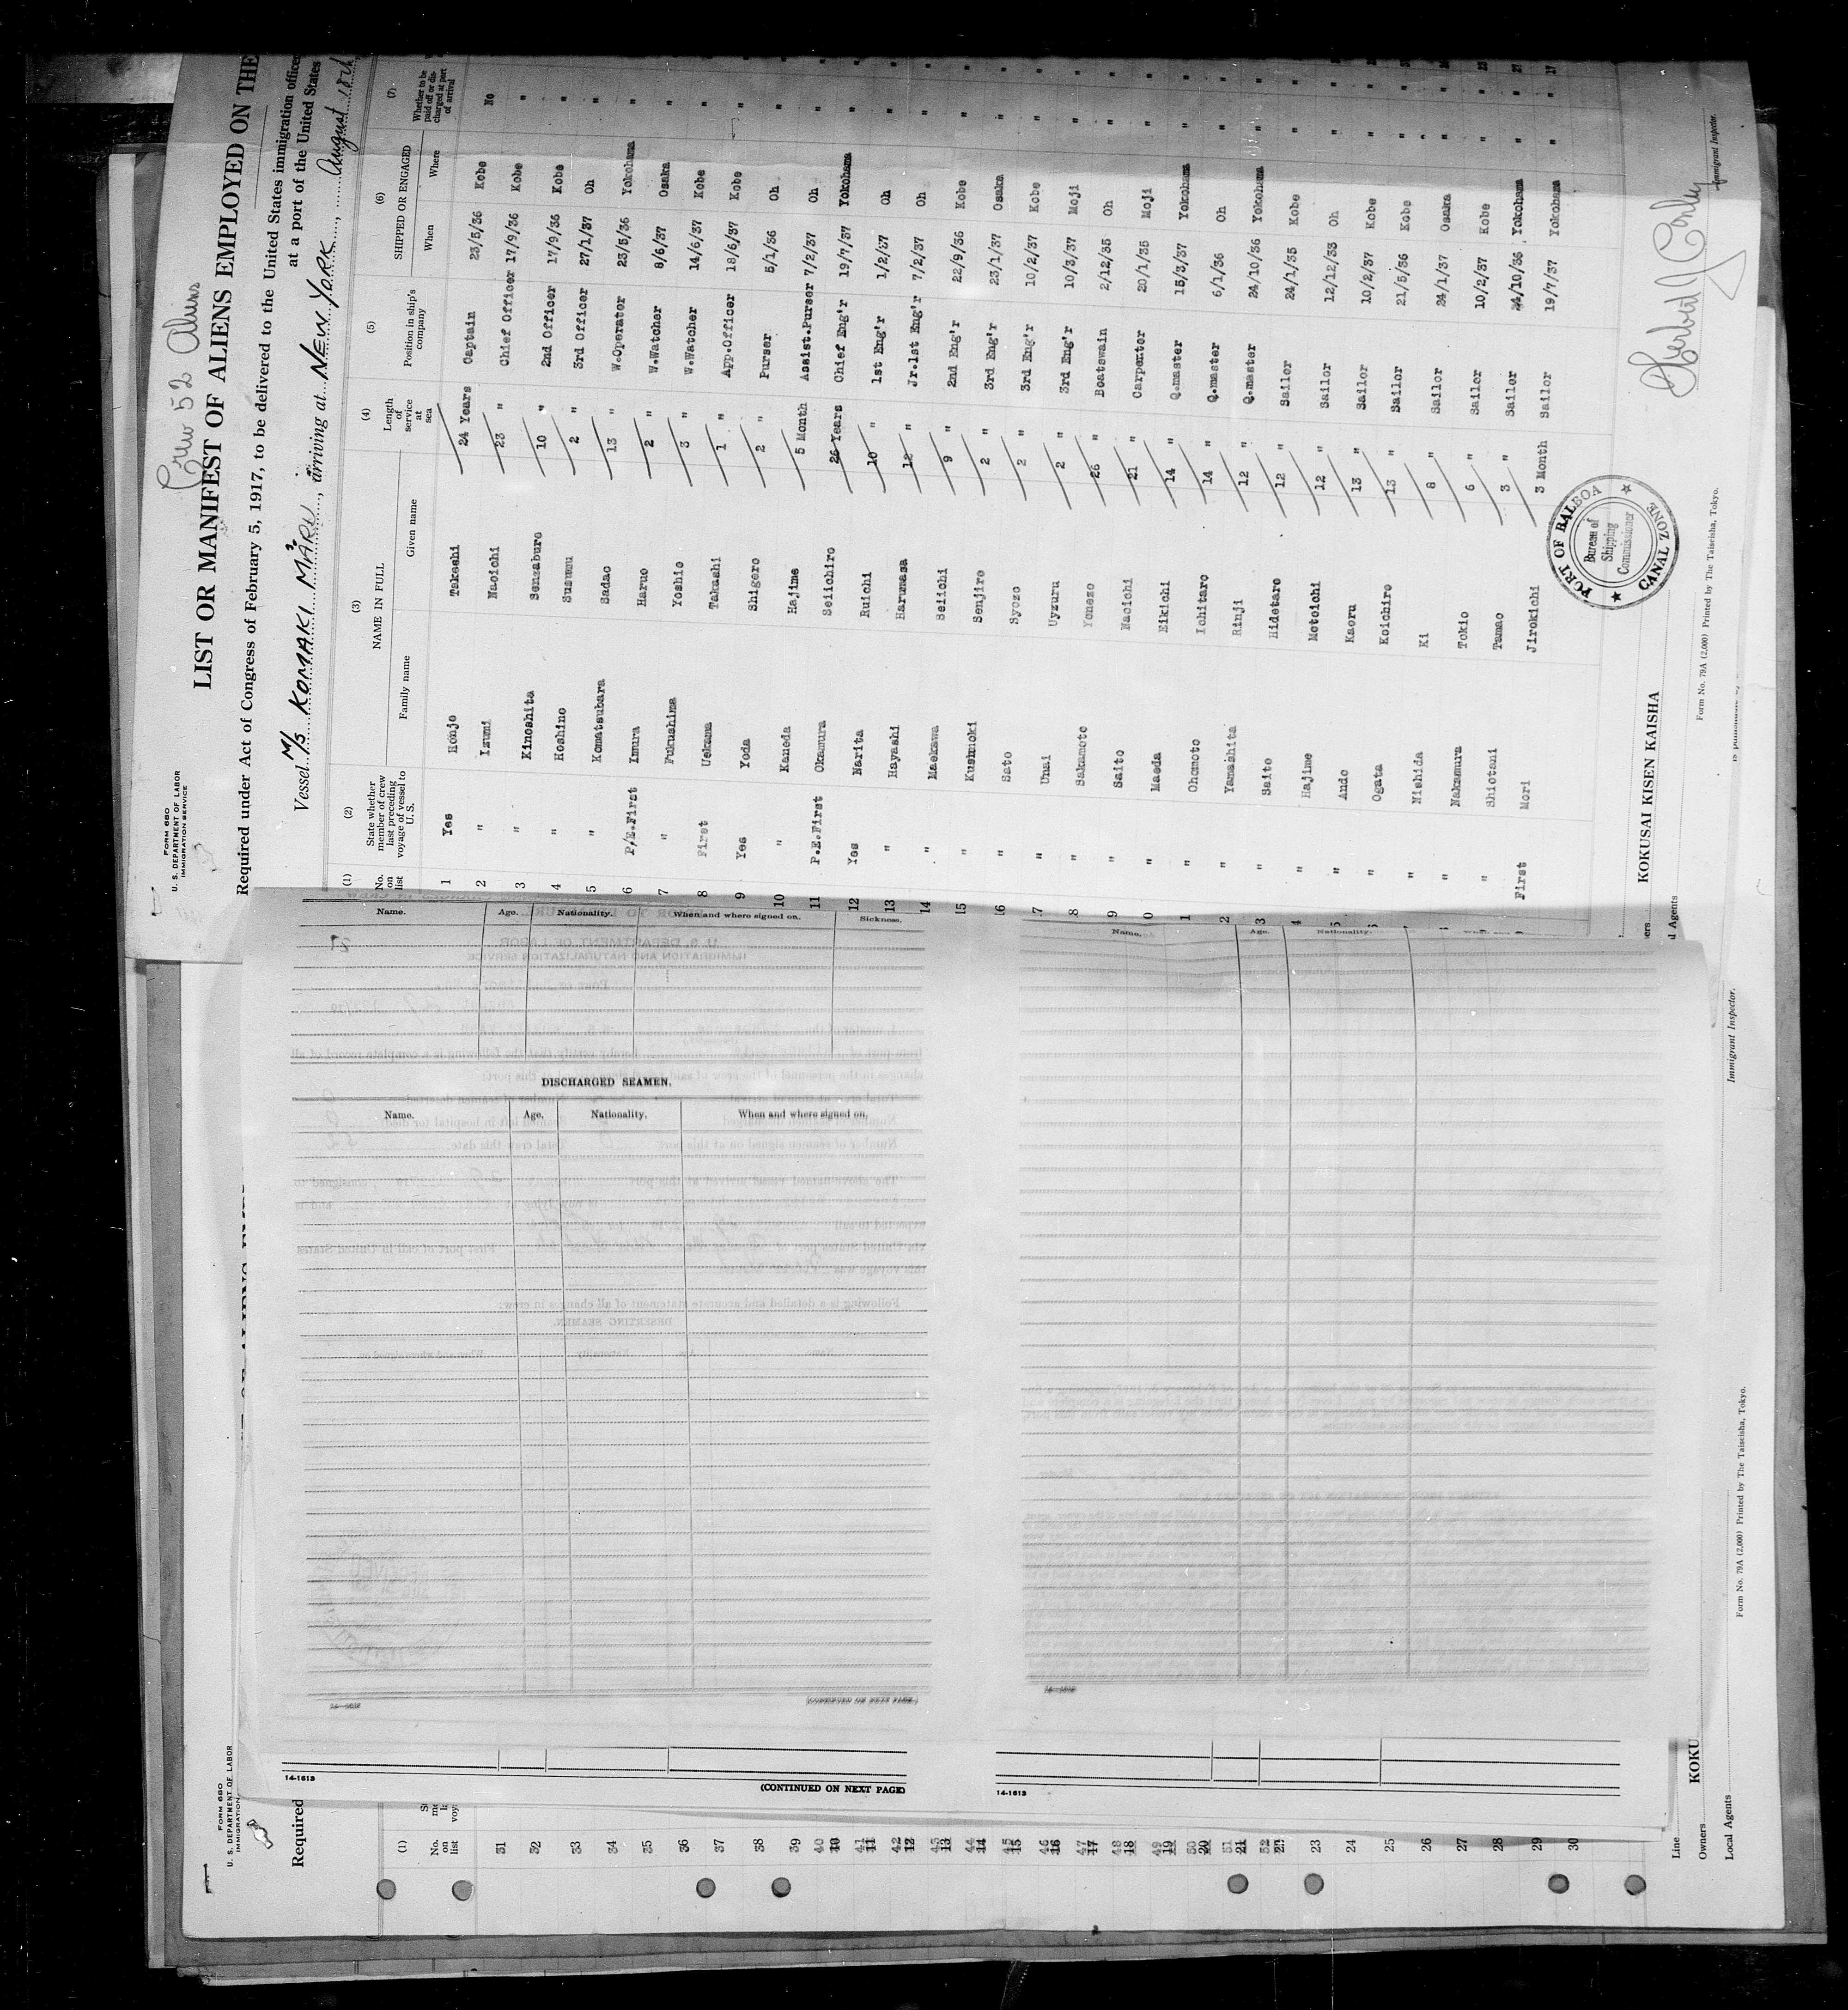 Crew 52 Aliens
FORM 680
U. S. DEPARTMENT OF LABOR
IMMIGRATION SERVICE
LIST OR MANIFEST OF ALIENS EMPLOYED ON THE
Required under Act of Congress of February 5, 1917, to be delivered to the United States immigration office
at a port of the United States
Vessel M/S KOMAKI MARU, arriving at NEW YORK, August 10th
(1) (2) (3) (4) (5) (6) (7)
No. on list
State whether member of crew last preceding voyage of vessel to U. S.
NAME IN FULL
Family name Given name
Length of service at sea
Position in ship's company
SHIPPED OR ENGAGED
When Where
Whether to be paid off or discharged at port of arrival
1 Yes Honjo Takeshi 24 Years Captain 23/5/36 Kobe No
2 " Izumi Naoichi 23 " Chief Officer 17/9/36 Kobe "
3 " Kinoshita Senzaburo 10 " 2nd Officer 17/9/36 Kobe "
4 " Hoshino Susumu 2 " 3rd Officer 27/1/37 Oh "
5 " Komatsubara Sadao 13 " W.Operator 23/5/36 Yokohama "
6 P/E.First Imura Haruo 2 " W.Watcher 8/6/37 Osaka "
7 " Fukushima Yoshio 3 " W.Watcher 14/6/37 Kobe "
8 First Uekama Takashi 1 " App.Officer 18/6/37 Kobe "
9 Yes Yoda Shigero 2 " Purser 5/1/36 Oh "
10 " Kaneda Hajime 5 Month Assist.Purser 7/2/37 Oh "
11 P.E.First Okamura Seiichiro 26 Years Chief Eng'r 19/7/37 Yokohama "
12 Yes Narita Ruichi 10 " 1st Eng'r 1/2/37 Oh "
13 " Hayashi Harumasa 12 " Jr.1st Eng'r 7/2/37 Oh "
14 " Maekawa Seiichi 9 " 2nd Eng'r 22/9/36 Kobe "
15 " Kusunoki Senjiro 2 " 3rd Eng'r 23/1/37 Osaka "
16 " Sato Syozo 2 " 3rd Eng'r 10/2/37 Kobe "
7 " Unai Uyzuru 2 " 3rd Eng'r 10/3/37 Moji "
8 " Sakamoto Yonezo 26 " Boatswain 2/12/35 Oh "
9 " Saito Naoichi 21 " Carpenter 20/1/35 Moji "
0 " Maeda Eikichi 14 " Q.master 15/3/37 Yokohama "
1 " Ohomoto Ichitaro 14 " Q.master 6/1/36 Oh "
2 " Yamashita Rinji 12 " Q.master 24/10/36 Yokohama "
3 " Saito Hidetaro 12 " Sailor 24/1/35 Kobe "
4 " Hajime Motoichi 12 " Sailor 12/12/33 Oh "
5 " Ando Kaoru 13 " Sailor 10/2/37 Kobe "
" Ogata Koichiro 13 " Sailor 21/5/36 Kobe "
" Nishida Ki 8 " Sailor 24/1/37 Osaka "
" Nakamura Tokio 6 " Sailor 10/2/37 Kobe "
" Shiotani Tamao 3 " Sailor 24/10/36 Yokohama "
First Mori Jirokichi 3 Month Sailor 19/7/37 Yokohama "
PORT OF BALBOA
Bureau of
Shipping
Commissioner
CANAL ZONE
KOKUSAI KISEN KAISHA
Herbert J Conley
Immigrant Inspector.
Form No. 79A (2,000) Printed by The Taiseisha, Tokyo.
Name. Age. Nationality. When and where signed on. Sickness.
DISCHARGED SEAMEN.
Name. Age. Nationality. When and where signed on.
Name. Age. Nationality.
14-1613
(CONTINUED ON NEXT PAGE)
14-1613
14-1613
(CONTINUED ON NEXT PAGE)
14-1613
FORM 680
U. S. DEPARTMENT OF LABOR
IMMIGRATION
Required
(1)
No. on list
31
32
33
34
35
36
37
38
39
40 10
41 11
42 12
43 13
44 14
45 15
46 16
47 17
48 18
49 19
50 20
51 21
52 22
23
24
25
26
27
28
29
30
Line
Owners KOKU
Local Agents
Immigrant Inspector.
Form No. 79A (2,000) Printed by The Taiseisha, Tokyo.